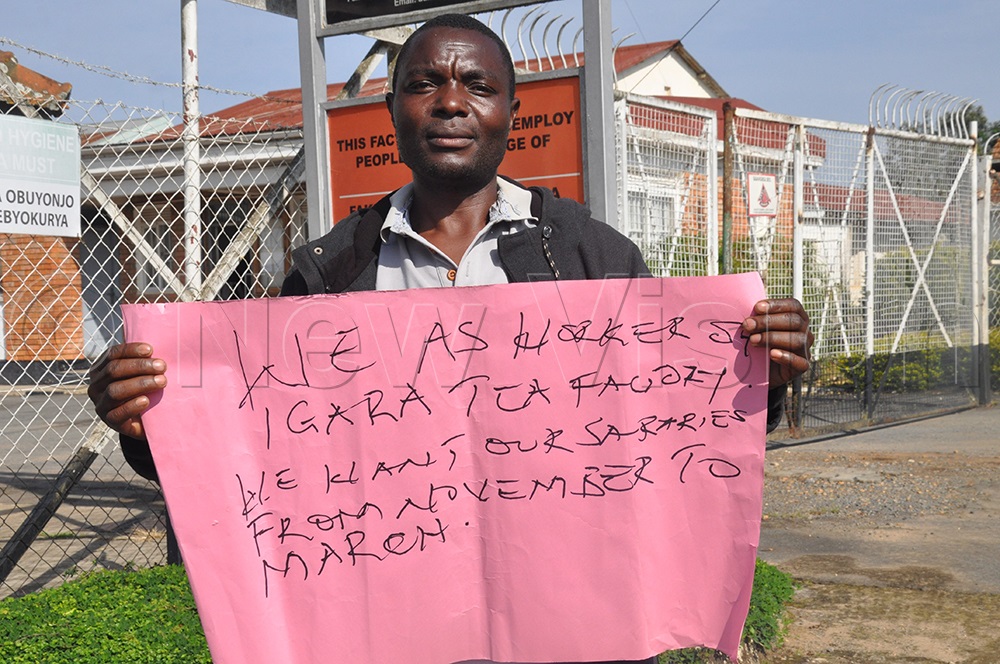 HYGIENE
A MUST
A OBUYONJO
EBYOKURYA
THIS FAC EMPLOY
PEOPL GE OF
New Vision
WE AS WORKER OF
IGARA TEA FACTORY.
WE WANT OUR SARARIES
FROM NOVEMBER TO
MARCH.